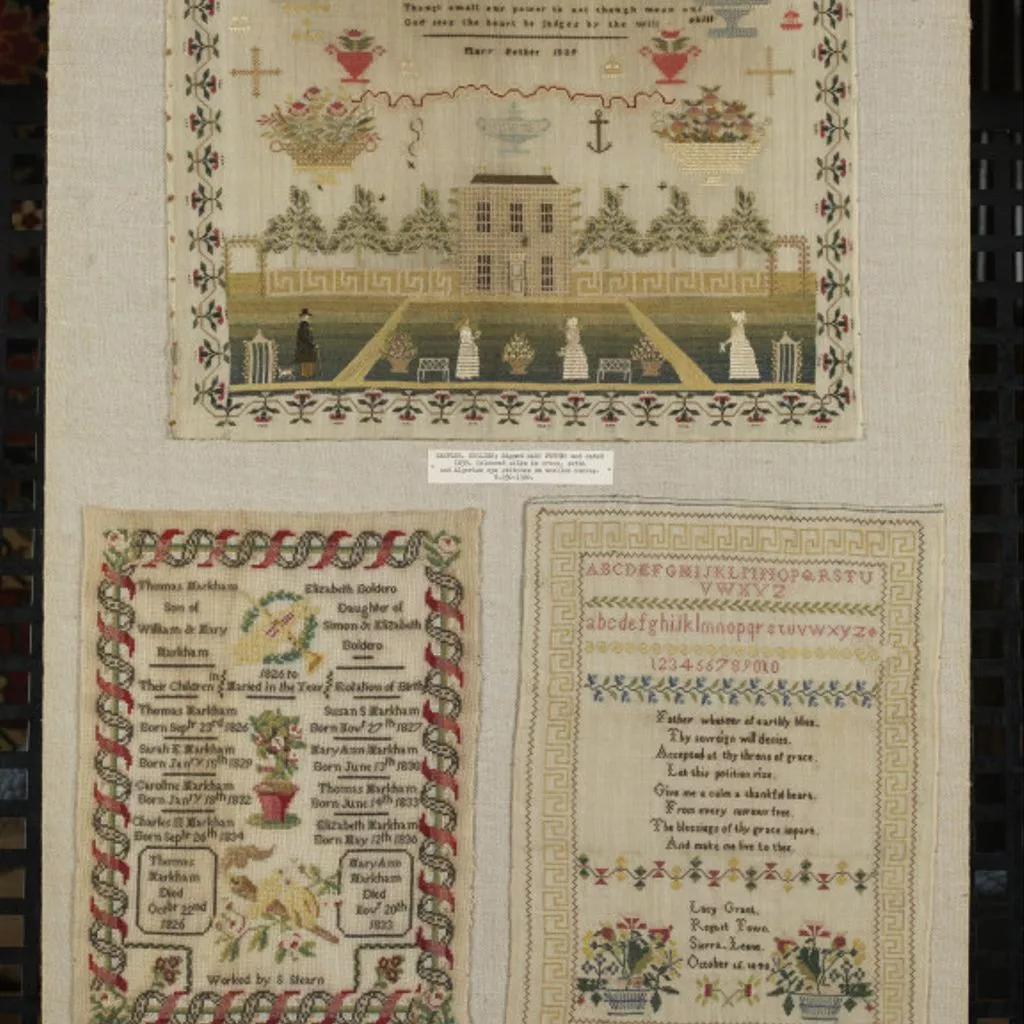 Though small our power to act though mean our
skill
God sees the heart he judges by the will
Mary Pether 1839
SAMPLER. ENGLISH; Signed MARY PETHER and dated
1839. Coloured silks in cross, satin
and Algerian eye stitches on woollen canvas.
Thomas Markham
Son of
William & Mary
Markham
Elizabeth Boldero
Daughter of
Simon & Elizabeth
Boldero
Their Children
in
1826 to
Maried in the Year
Rotation of Birth
Thomas Markham
Born Sepr 23rd 1826
Susan S Markham
Born Novr 27th 1827
Sarah E Markham
Born Janry 19th 1829
Mary Ann Markham
Born June 13th 1830
Caroline Markham
Born Janry 18th 1832
Thomas Markham
Born June 14th 1833
Charles H Markham
Born Sepr 26th 1834
Elizabeth Markham
Born May 12th 1836
Thomas
Markham
Died
Octbr 22nd
1826
Mary Ann
Markham
Died
Novr 20th
1833
Worked by S Stearn
ABCDEFGHIJKLMNOPQRSTU
VWXYZ
abcdefghijklmnopqrstuvwxyz
Father whatever of earthly bliss,
Thy sovereign will denies,
Accepted at thy throne of grace,
Let this petition rise.
Give me a calm a thankful heart,
From every murmur free,
The blessings of thy grace impart,
And make me live to thee.
Lucy Grant,
Regent Town,
Sierra Leone,
October 15,